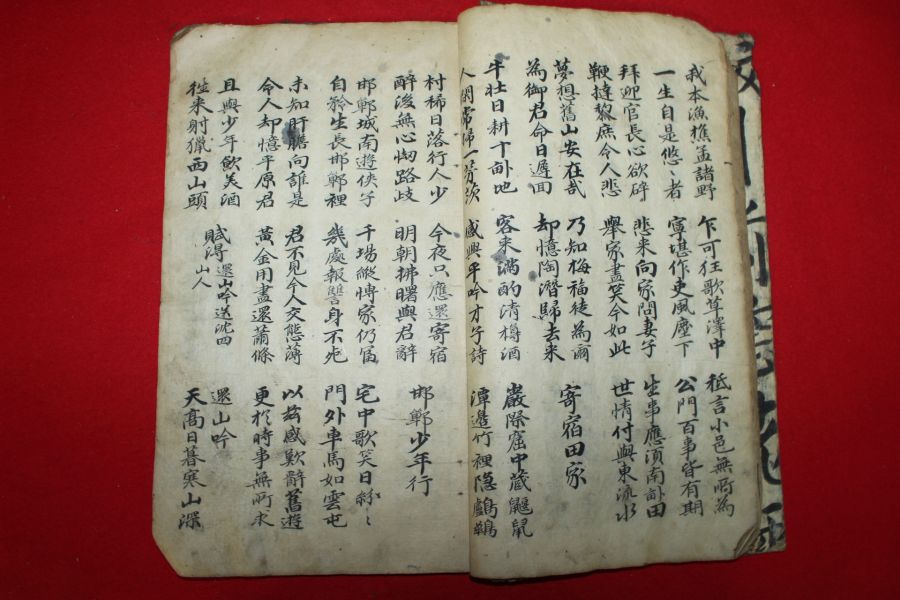 我本漁樵孟諸野 乍可狂歌草澤中 秪言小邑無所為
一生自是悠〻者 寧堪作吏風塵下 公門百事皆有期
拜迎官長心欲碎 悲来向家問妻子 生事應須南畝田
鞭撻黎庶令人悲 舉家盡笑今如此 世情付與東流水
夢想舊山安在哉 乃知梅福徒為爾 寄宿田家
為御君命日遲回 却憶陶潛歸去来
牛壯日耕十畝地 客来滿酌清樽酒 巖際窟中藏鼴鼠
人閑常掃一茅茨 感興平吟才子詩 潭邊竹裡隱鸕鶿
村稀日落行人少 今夜只應還寄宿 邯鄲少年行
醉後無心怯路歧 明朝拂曙與君辭
邯鄲城南遊俠子 千場縱博家仍富 宅中歌笑日紛〻
自矜生長邯鄲裡 幾處報讐身不死 門外車馬如雲屯
未知肝膽向誰是 君不見今人交態薄 以玆感歎辭舊遊
令人却憶平原君 黃金用盡還蕭條 更於時事無所求
且與少年飮美酒 賦得還山吟送沈四山人 還山吟
徃来射獵西山頭 天高日暮寒山深